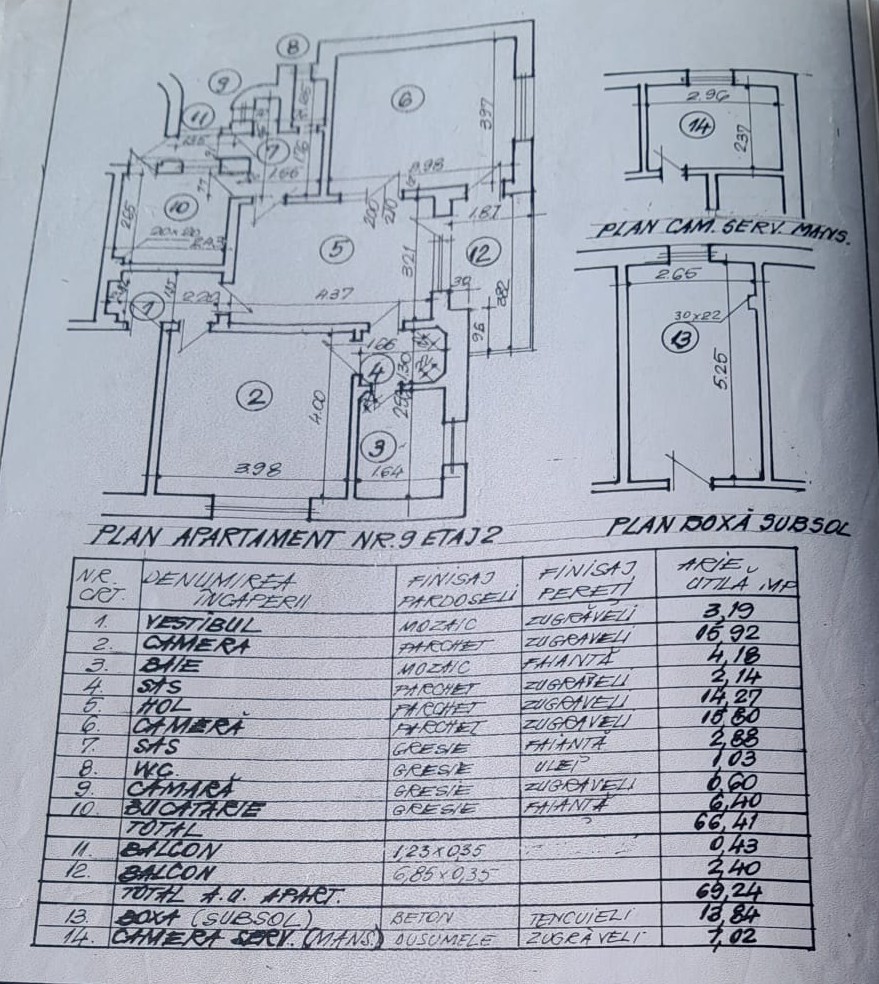 8
9
6
11
3.97
2.96
14
2.37
1.35
7
1.66
3.98
10
2.65
20x20
2.43
200
210
1.87
PLAN CAM. SERV. MANS.
5
3.21
12
2.65
30
382
1
2.20
4.37
30x22
13
96
1.66
4
1.30
5.25
2
4.00
3
3.98
1.64
PLAN APARTAMENT NR. 9 ETAJ 2
PLAN BOXĂ SUBSOL
NR. CRT. DENUMIREA ÎNCAPERII FINISAJ PARDOSELI FINISAJ PEREȚI ARIE UTILĂ MP
1. VESTIBUL MOZAIC ZUGRĂVELI 3,19
2. CAMERA PARCHET ZUGRAVELI 15,92
3. BAIE MOZAIC FAIANTĂ 4,18
4. SAS PARCHET ZUGRAVELI 2,14
5. HOL PARCHET ZUGRAVELI 14,27
6. CAMERĂ PARCHET ZUGRAVELI 15,80
7. SAS GRESIE FAIANTĂ 2,88
8. W.C. GRESIE ULEI 1,03
9. CĂMARĂ GRESIE ZUGRAVELI 0,60
10. BUCATARIE GRESIE FAIANTĂ 6,40
TOTAL 66,41
11. BALCON 1,23x0,35 0,43
12. BALCON 6,85x0,35 2,40
TOTAL A.U. APART. 69,24
13. BOXA (SUBSOL) BETON TENCUIELI 13,84
14. CAMERA SERV. (MANS.) DUSUMELE ZUGRĂVELI 7,02